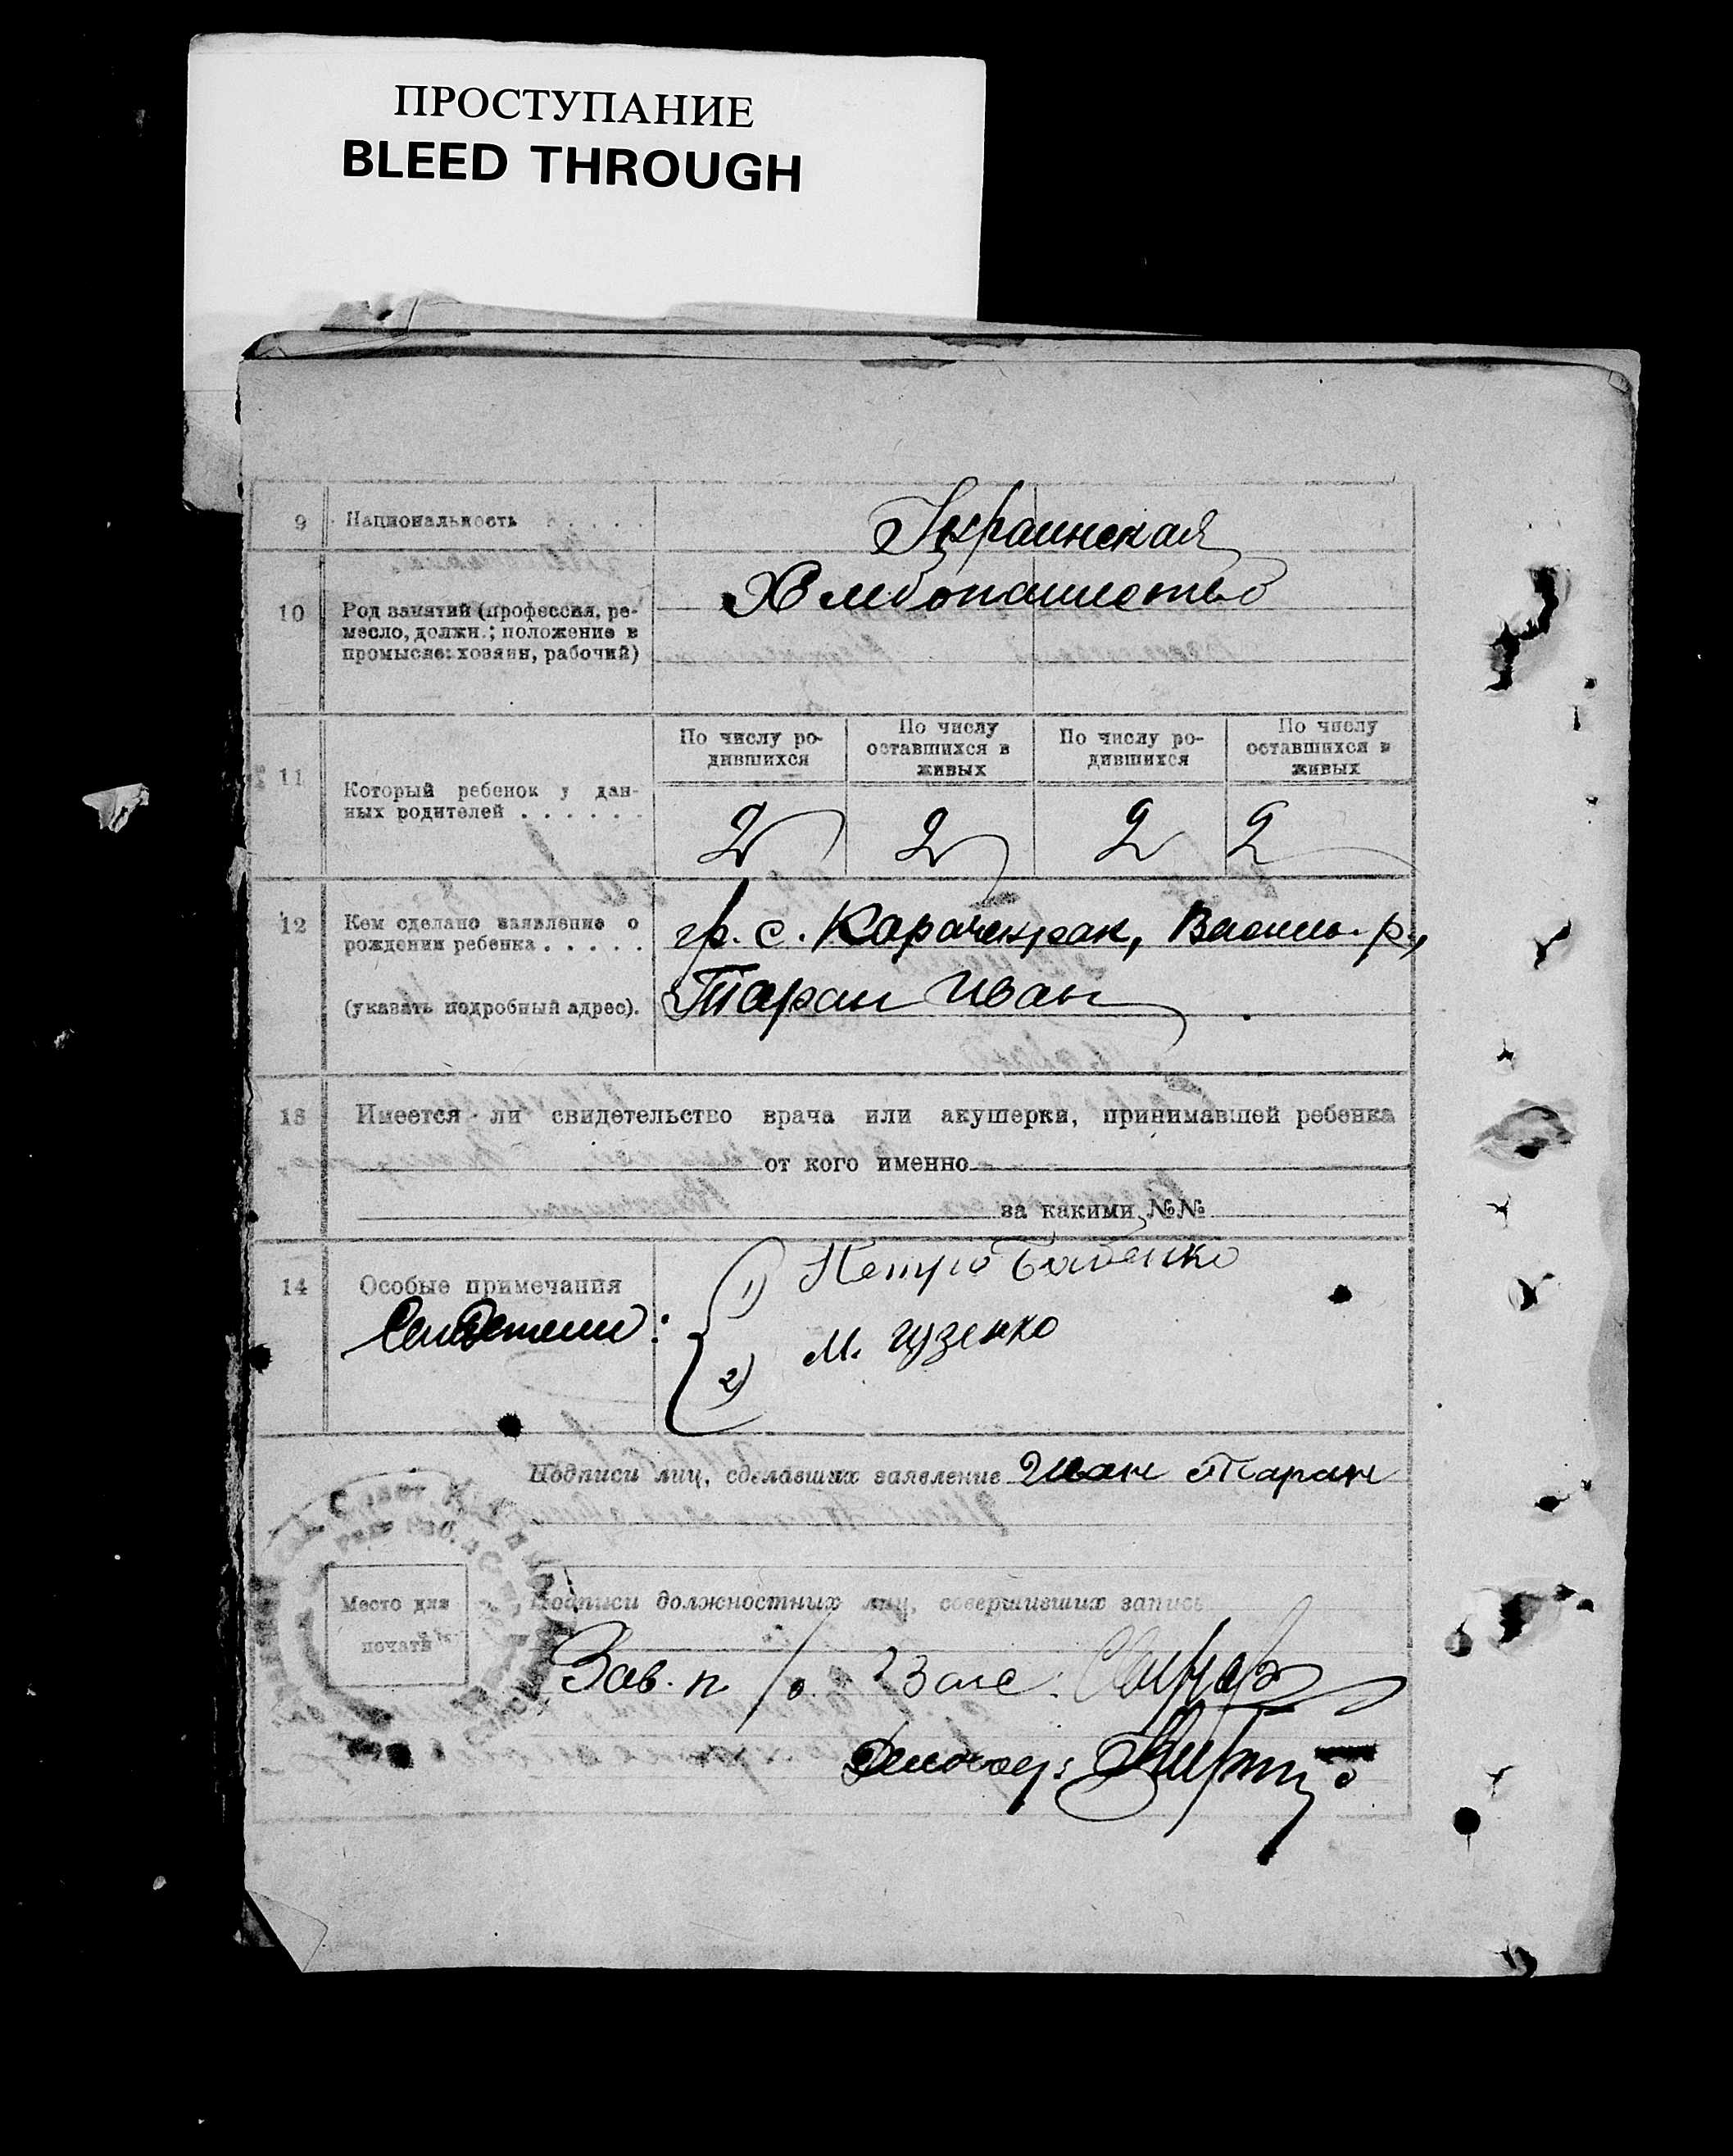 ПРОСТУПАНИЕ
BLEED THROUGH
9 Национальность . . . .
Украинская
10 Род занятий (профессия, ре-
месло, должн.; положение в
промысле: хозяин, рабочий)
Хлебопашество
11 Который ребенок у дан-
ных родителей . . . . . .
По числу ро-
дившихся
По числу
оставшихся в
живых
По числу ро-
дившихся
По числу
оставшихся в
живых
2 2 2 2
12 Кем сделано заявление о
рождении ребенка . . . . .
(указать подробный адрес).
гр. с. Карачекрак, Василь. р.,
Таран Иван
13 Имеется ли свидетельство врача или акушерки, принимавшей ребенка
от кого именно
за какими №№
14 Особые примечания
Свидетели:
1) Петро Бабенко
2) М. гузенко
Подписи лиц, сделавших заявление Иван Таран
Подписи должностных лиц, совершивших запись
Место для
печати
Зав. п/о Загс
Делов.: